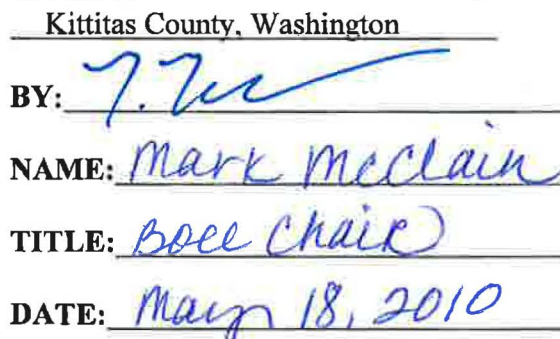 Kittitas County, Washington
BY:
NAME: Mark McClain
TITLE: BOCC Chair
DATE: May 18, 2010